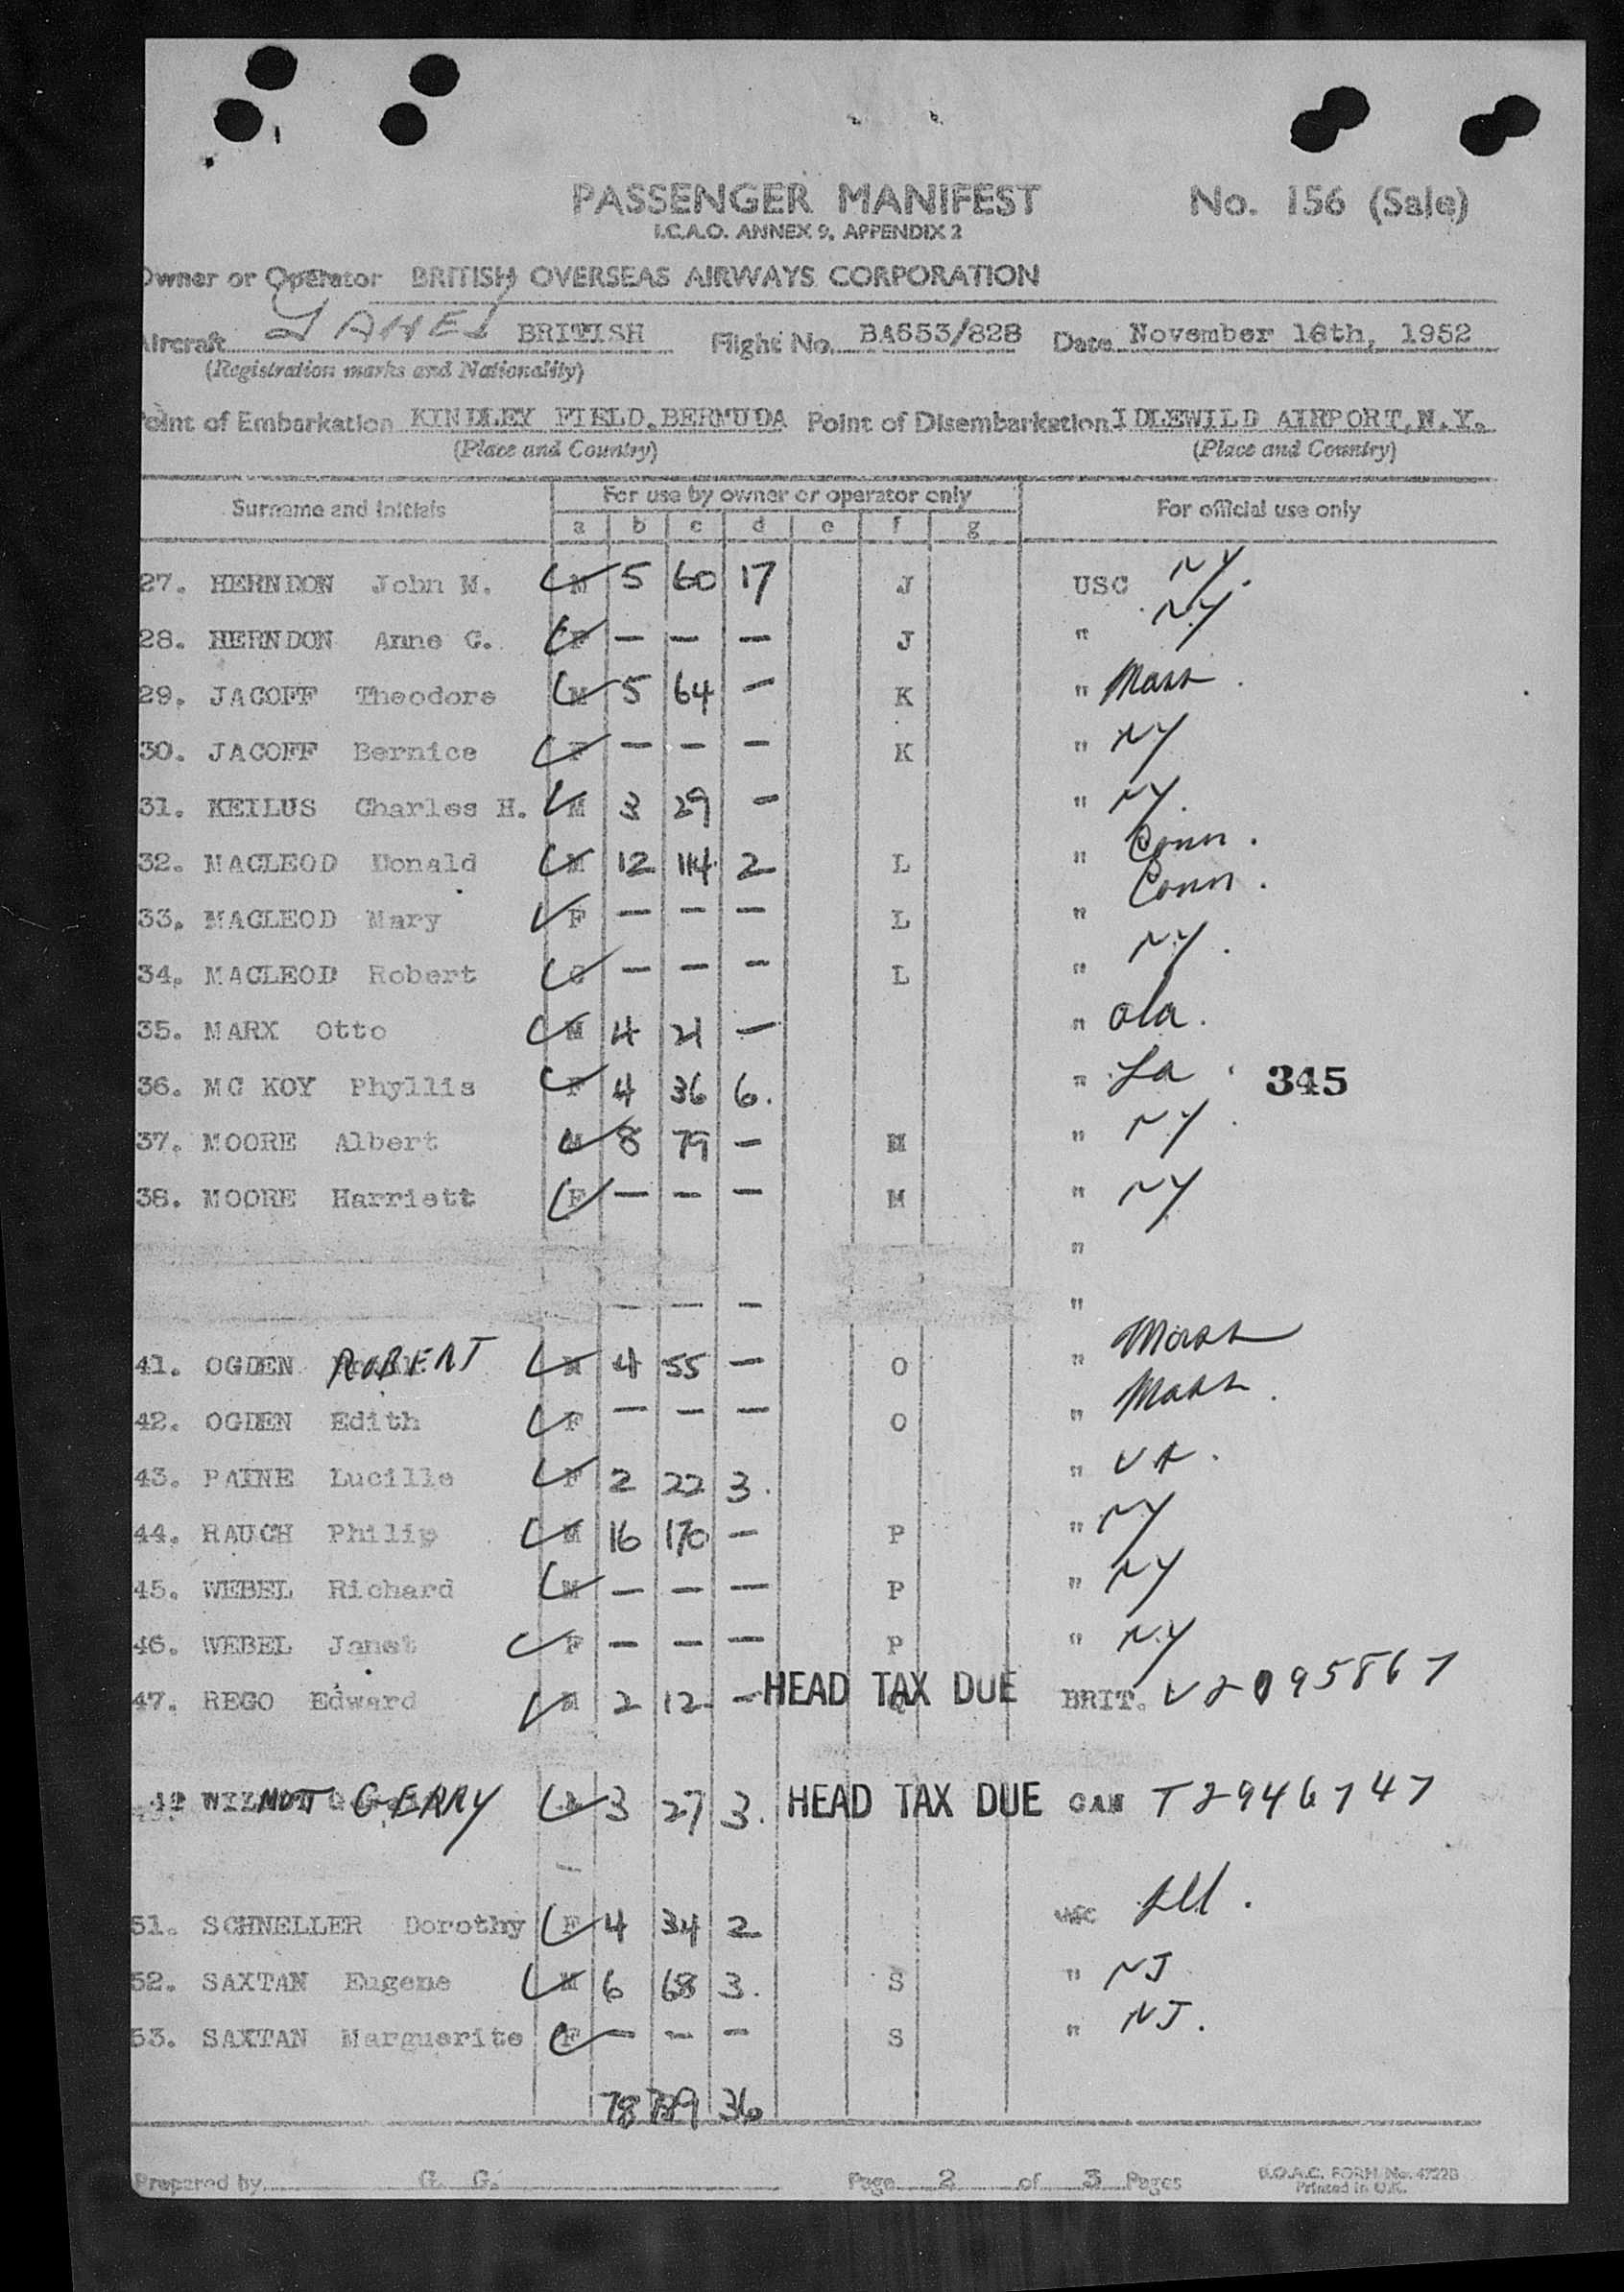 PASSENGER MANIFEST No. 156 (Sale)
I.C.A.O. ANNEX 9, APPENDIX 2
Owner or Operator BRITISH OVERSEAS AIRWAYS CORPORATION
Aircraft BRITISH Flight No. BA653/828 Date November 18th, 1952
(Registration marks and Nationality)
Point of Embarkation KINDLEY FIELD.BERMUDA Point of Disembarkation IDLEWILD AIRPORT,N.Y.
(Place and Country) (Place and Country)
Surname and Initials For use by owner or operator only For official use only
a b c d e f g
27. HERNDON John M. M 5 60 17 J USC NY.
28. HERNDON Anne G. F — — — J " NY
29. JACOFF Theodore M 5 64 — K " Mass.
30. JACOFF Bernice F — — — K " NY
31. KEILUS Charles H. M 3 29 — " NY.
32. MACLEOD Donald M 12 114 2 L " Conn.
33. MACLEOD Mary F — — — L " Conn.
34. MACLEOD Robert C — — — L " NY.
35. MARX Otto M 4 21 — " ala.
36. MC KOY Phyllis F 4 36 6. " La 345
37. MOORE Albert M 8 79 — M " NY.
38. MOORE Harriett F — — — M " NY
"
— — — "
41. OGDEN ROBERT M 4 55 — O " Mass
42. OGDEN Edith F — — — O " Mass.
43. PAINE Lucille F 2 22 3. " VA.
44. RAUCH Philip M 16 170 — P " NY
45. WEBEL Richard M — — — P " NY
46. WEBEL Janet F — — — P " NY
47. REGO Edward M 2 12 — HEAD TAX DUE BRIT. V2095867
WILMOTT GERRY 3 27 3. HEAD TAX DUE CAN T2946747
51. SCHNELLER Dorothy F 4 34 2 USC Ill.
52. SAXTAN Eugene M 6 68 3. S " NJ
53. SAXTAN Marguerite F — — — S " NJ.
78 789 36
Prepared by G. G. Page 2 of 3 Pages B.O.A.C. FORM No. 4722B
Printed in U.K.